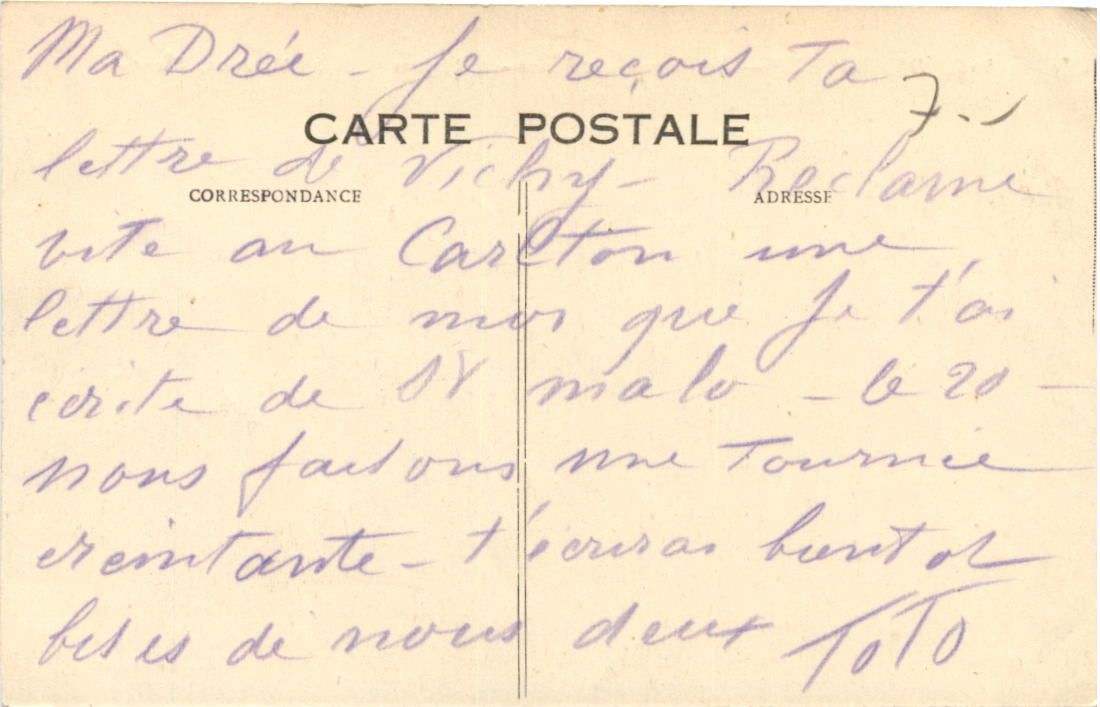 Ma Drée - Je reçois ta
7.-
CARTE POSTALE
lettre de Vichy - Réclame
CORRESPONDANCE
ADRESSE
vite au Carlton une
lettre de moi que je t'ai
écrite de St malo - le 20 -
nous faisons une tournée
éreintante - t'écrirai bientot
bises de nous deux TOTO